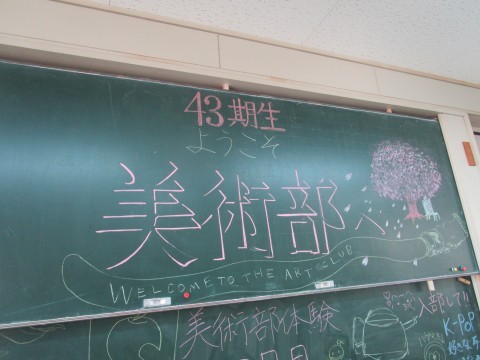 43期生
ようこそ
美術部へ
WELCOME TO THE ART CLUB
美術部体験
入部して!!
K-POP